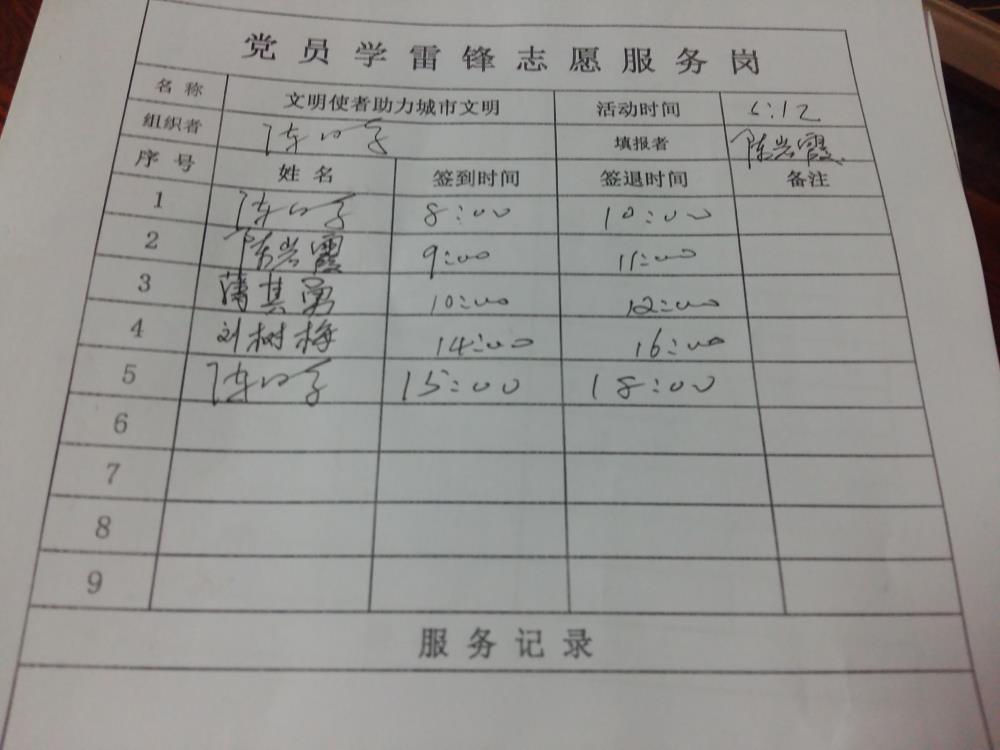 党员学雷锋志愿服务岗
名称 文明使者助力城市文明 活动时间 5:12
组织者 填报者 陈岩霞
序号 姓名 签到时间 签退时间 备注
1 8:00 10:00
2 陈岩霞 9:00 11:00
3 蒋其勇 10:00 12:00
4 刘树梅 14:00 16:00
5 15:00 18:00
6
7
8
9
服务记录